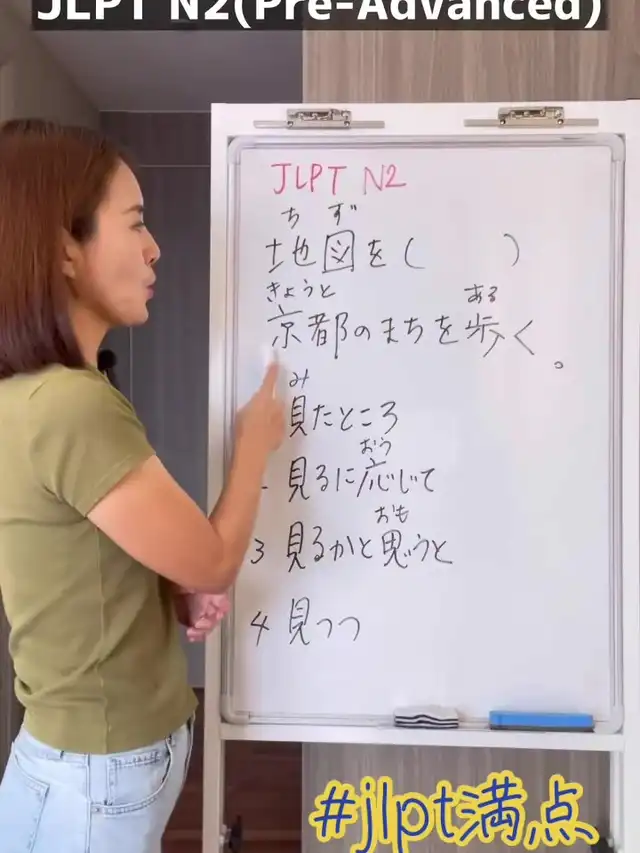 JLPT N2(Pre-Advanced)
JLPT N2
ちず
地図を(　　)
きょうと　ある
京都のまちを歩く。
み
見たところ
おう
見るに応じて
おも
3 見るかと思うと
4 見つつ
#jlpt満点